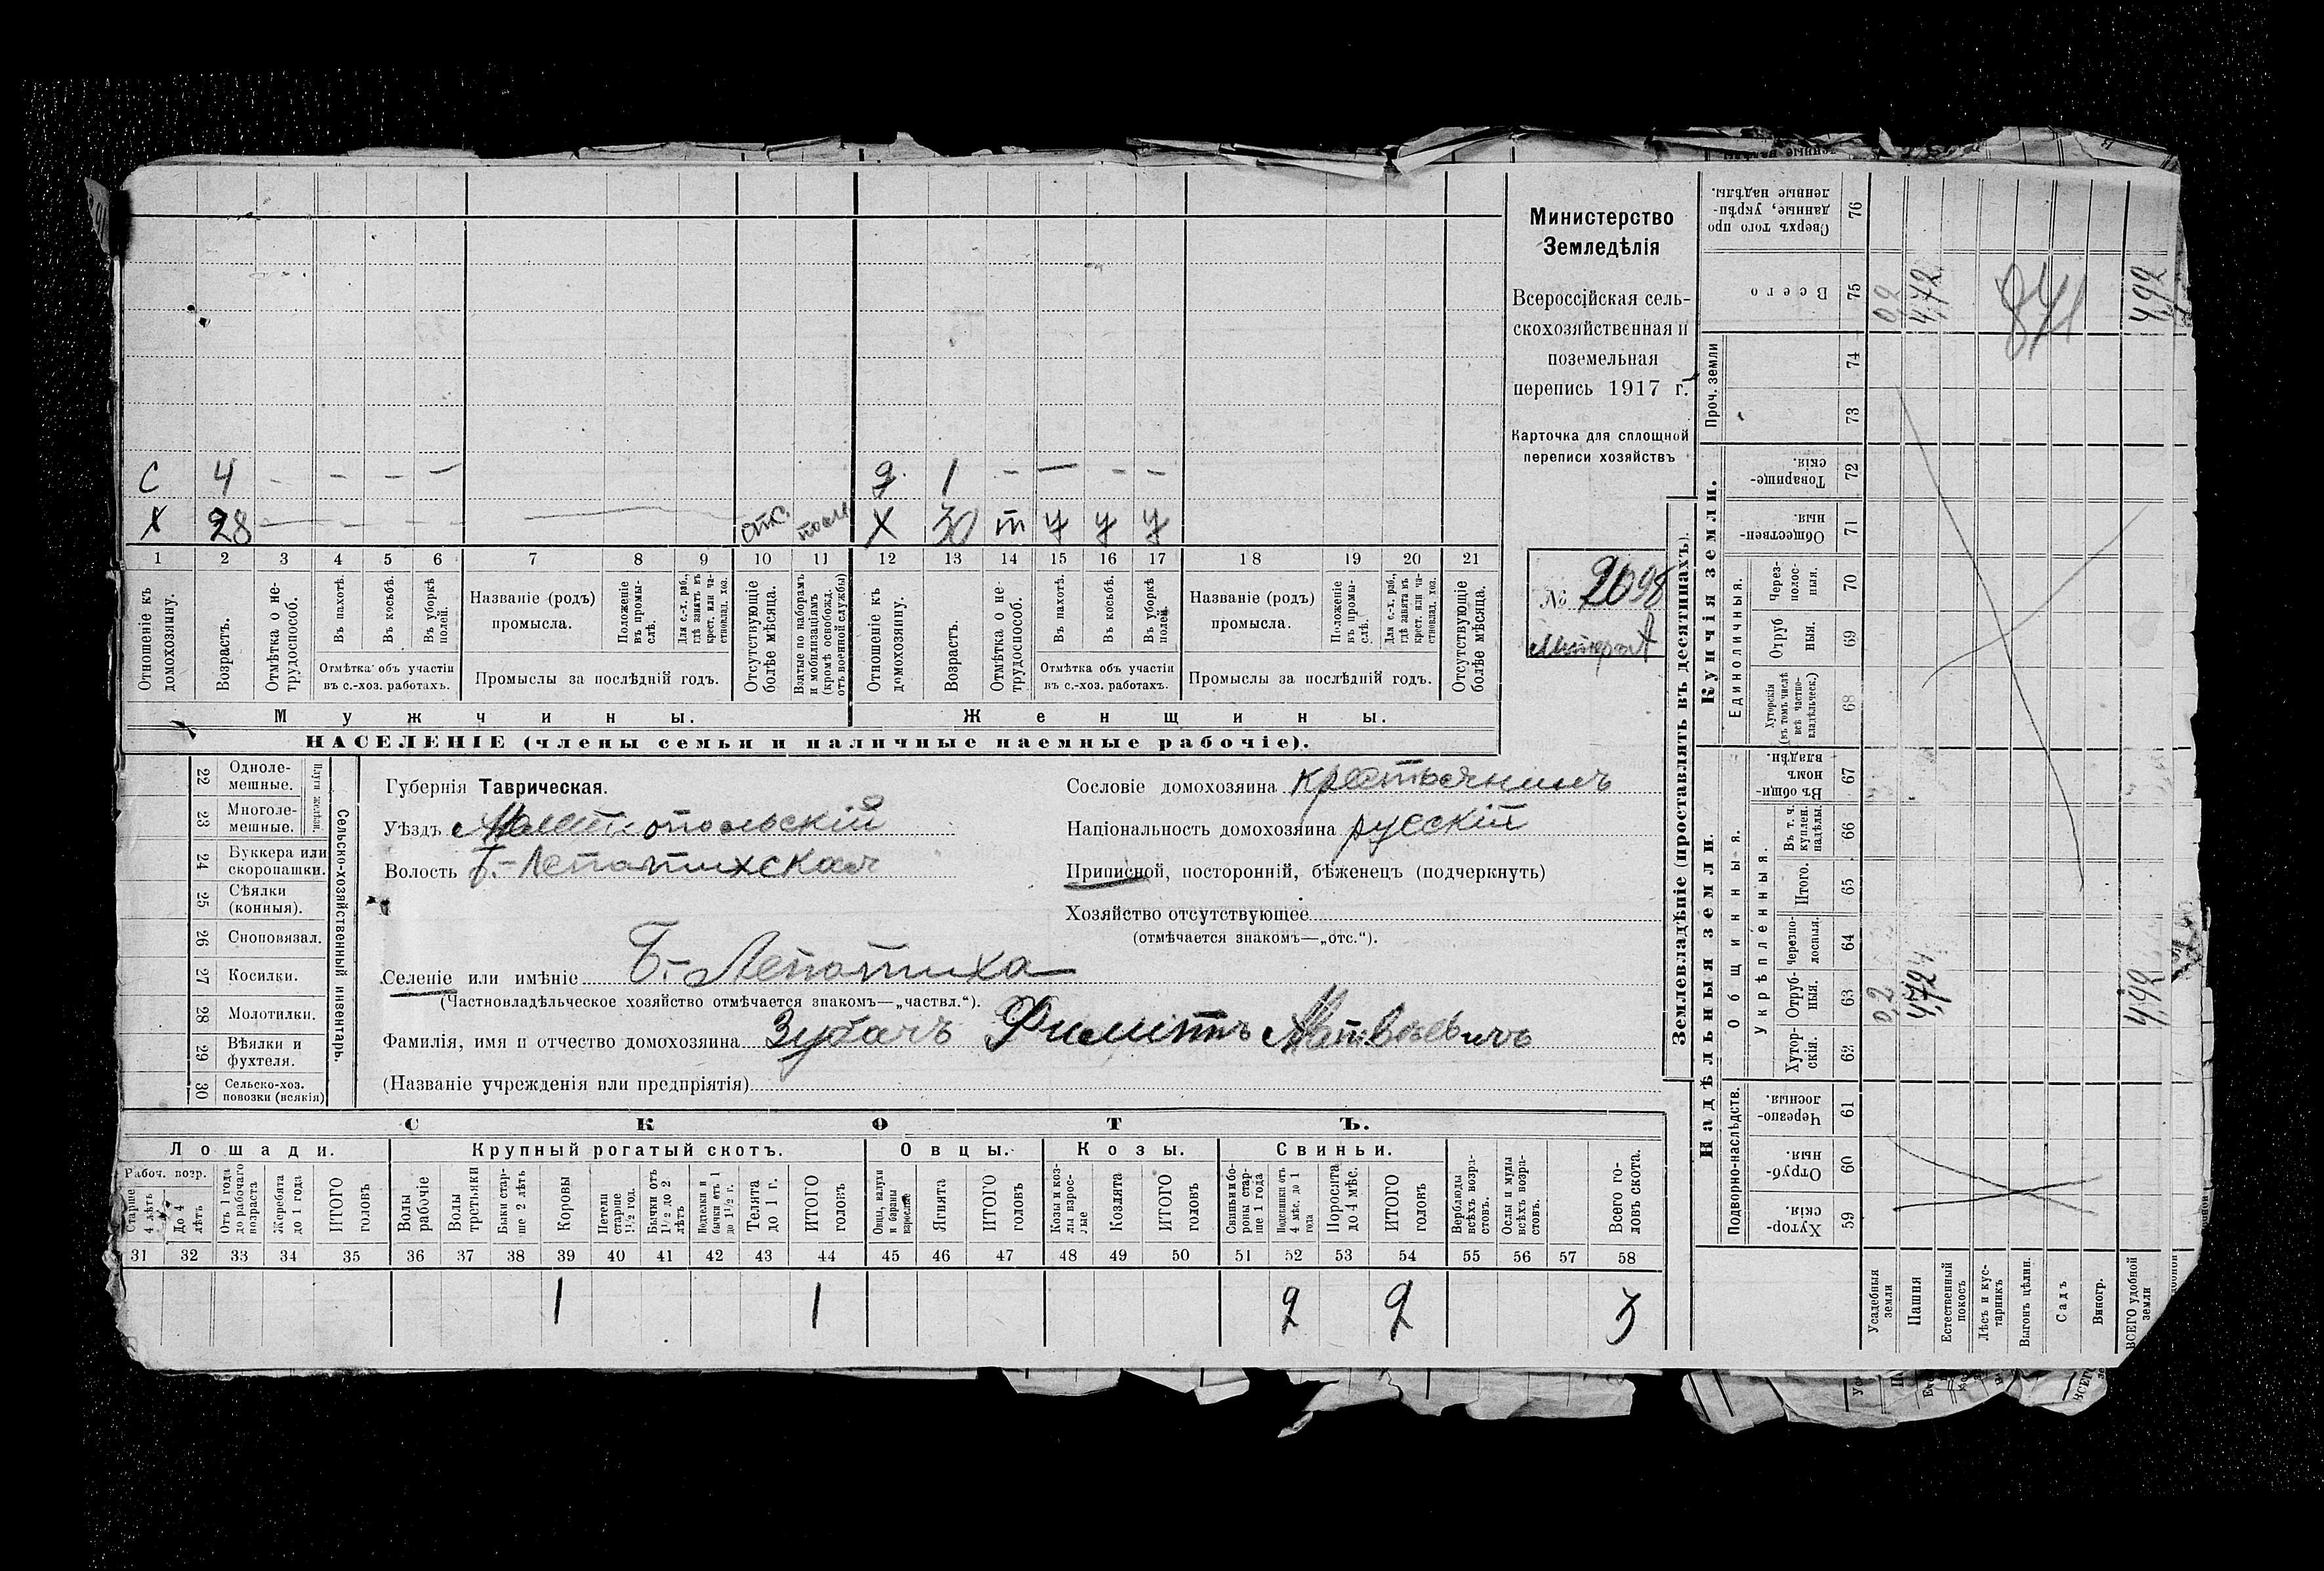 Министерство
Земледѣлія
Всероссійская сель-
скохозяйственная и
поземельная
перепись 1917 г.
Карточка для сплошной
переписи хозяйствъ
№ 2098
С 4 - - - - д. 1 - - - -
Х 28 - - - - отс. Х 30 т у у у
1 2 3 4 5 6 7 8 9 10 11 12 13 14 15 16 17 18 19 20 21
Отношеніе къ домохозяину.
Возрастъ.
Отмѣтка о не-трудоспособ.
Въ пахотѣ.
Въ косьбѣ.
Въ уборкѣ полей.
Отмѣтка объ участіи
въ с.-хоз. работахъ.
Названіе (родъ)
промысла.
Положеніе въ промы-слѣ.
Для с.-х. раб., гдѣ занятъ въ крест. или ча-стновлад. хоз.
Промыслы за послѣдній годъ.
Отсутствующіе болѣе мѣсяца.
Взятые по наборамъ и мобилизаціямъ (кромѣ освобожд. отъ военной службы)
Отношеніе къ домохозяину.
Возрастъ.
Отмѣтка о не-трудоспособ.
Въ пахотѣ.
Въ косьбѣ.
Въ уборкѣ полей.
Отмѣтка объ участіи
въ с.-хоз. работахъ.
Названіе (родъ)
промысла.
Положеніе въ промы-слѣ.
Для с.-х. раб., гдѣ занята въ крест. или ча-стновлад. хоз.
Промыслы за послѣдній годъ.
Отсутствующіе болѣе мѣсяца.
Мужчины.
Женщины.
НАСЕЛЕНІЕ (члены семьи и наличные наемные рабочіе).
Сельско-хозяйственный инвентарь.
Плуги желѣзн.
22 Одноле-мешные.
23 Многоле-мешные.
24 Буккера или скоропашки.
25 Сѣялки (конныя).
26 Сноповязал.
27 Косилки.
28 Молотилки.
29 Вѣялки и фухтеля.
30 Сельско-хоз. повозки (всякія)
Губернія Таврическая.
Уѣздъ Мелитопольскій
Волость Б.-Лепатихская
Селеніе или имѣніе Б.-Лепатиха
(Частновладѣльческое хозяйство отмѣчается знакомъ—„частвл.“).
Фамилія, имя и отчество домохозяина Зубачъ Филиппъ Матвѣевичъ
(Названіе учрежденія или предпріятія)
Сословіе домохозяина крестьянинъ
Національность домохозяина русскій
Приписной, посторонній, бѣженецъ (подчеркнуть)
Хозяйство отсутствующее
(отмѣчается знакомъ—„отс.“).
СКОТЪ.
Лошади. Крупный рогатый скотъ. Овцы. Козы. Свиньи.
Рабоч. возр.
Старше 4 лѣтъ
До 4 лѣтъ
Отъ 1 года до рабочаго возраста
Жеребята до 1 года
ИТОГО головъ
Волы рабочіе
Волы третьяки
Быки стар-ше 2 лѣтъ
Коровы
Нетели старше 1½ год.
Бычки отъ 1½ до 2 лѣтъ
Подтелки и бычки отъ 1 до 1½ г.
Телята до 1 г.
ИТОГО головъ
Овцы, валухи и бараны взрослые
Ягнята
ИТОГО головъ
Козы и коз-лы взрос-лые
Козлята
ИТОГО головъ
Свиньи и бо-ровы стар-ше 1 года
Подсвинки отъ 4 мѣс. до 1 года
Поросята до 4 мѣс.
ИТОГО головъ
Верблюды всѣхъ возра-стовъ.
Ослы и мулы всѣхъ возра-стовъ.
Всего го-ловъ скота.
31 32 33 34 35 36 37 38 39 40 41 42 43 44 45 46 47 48 49 50 51 52 53 54 55 56 57 58
1 1 2 2 3
Землевладѣніе (проставлять въ десятинахъ).
Надѣльныя земли.
Купчія земли.
Проч. земли
Подворно-наслѣдств.
Общинныя.
Укрѣпленныя.
Единоличныя.
Хутор-скія. 59
Отруб-ныя. 60
Черезпо-лосныя. 61
Хутор-скія. 62
Отруб-ныя. 63
Черезпо-лосныя. 64
Итого. 65
Въ т. ч. куплен. надѣлы. 66
Въ общи-номъ владѣн. 67
Хуторскія (въ томъ числѣ всѣ частно-владѣльческ.) 68
Отруб ныя. 69
Через-полос-ныя. 70
Обществен-ныя. 71
Товарище-скія. 72
73
74
Всего 75
Сверхъ того про данные, укрѣп-ленные надѣлы. 76
Усадебныя земли 0,2 0,2
Пашня 4,72 4,72
Естественный покосъ
Лѣсъ и кус-тарникъ
Выгонъ цѣлин.
Садъ
Виногр.
ВСЕГО удобной земли 4,92 4,92
841